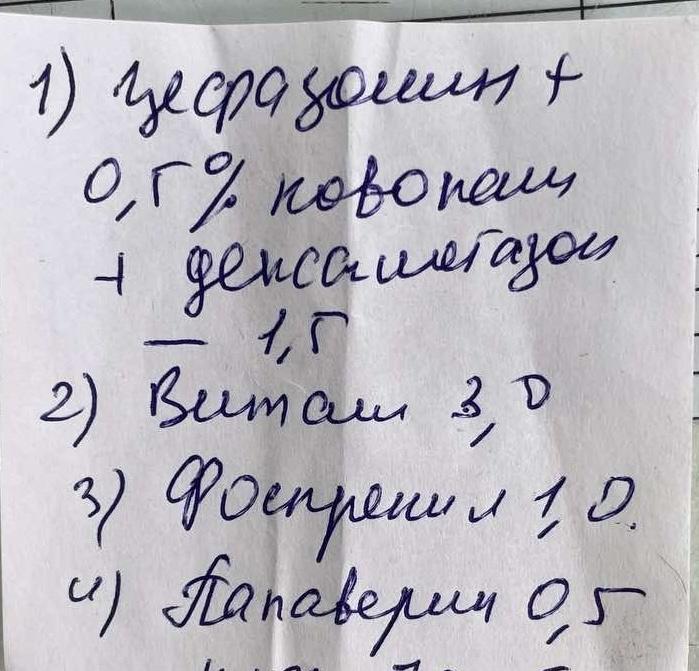 1) Цефазолин +
0,5% новокаин
+ дексаметазон
— 1,5
2) Витам 3,0
3) Фоспренил 1,0.
4) Папаверин 0,5